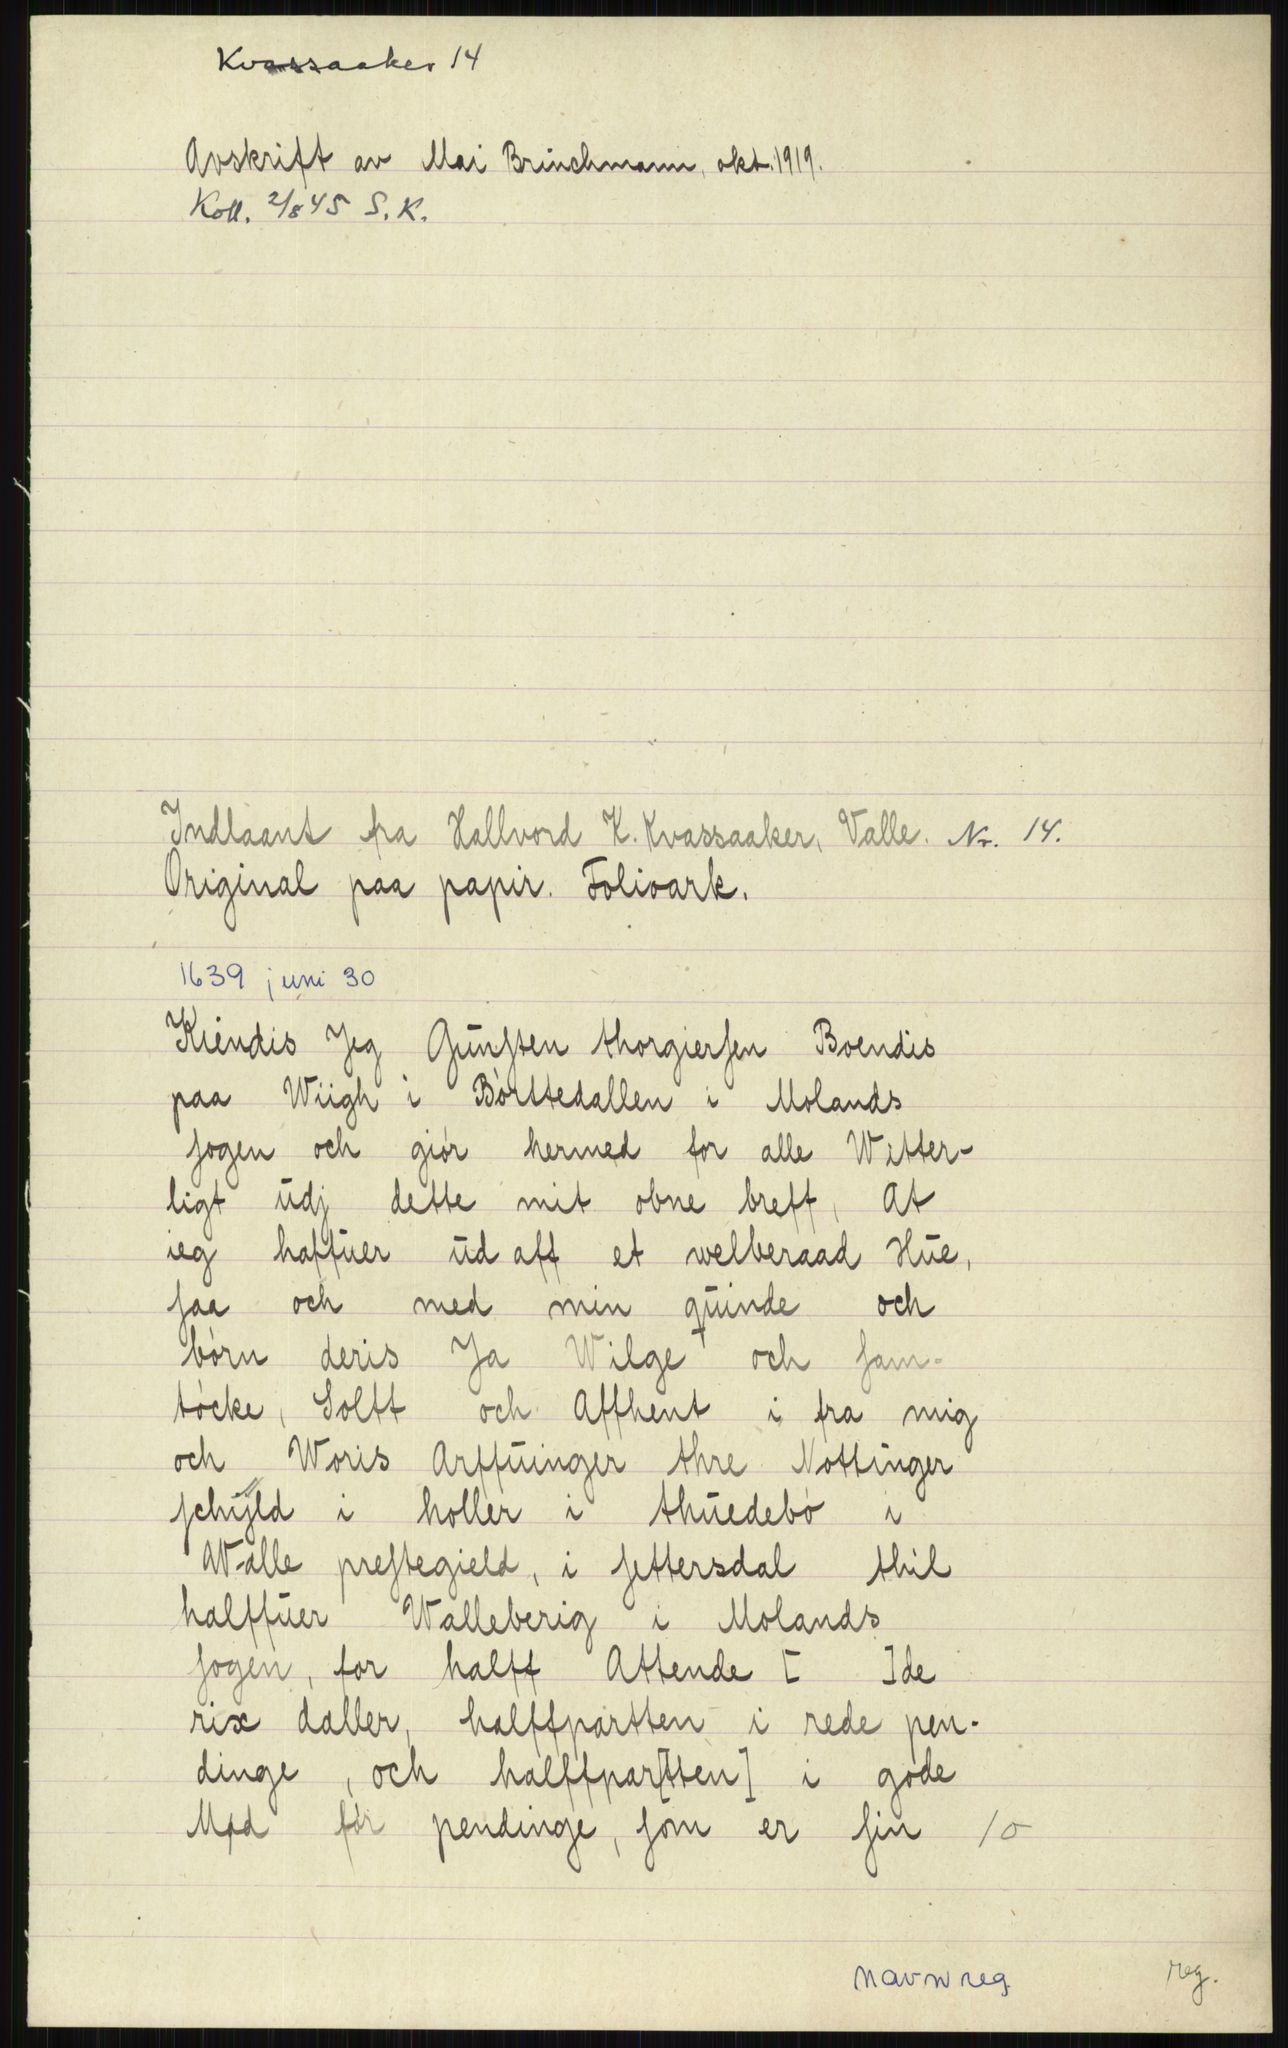 Kvassaaker 14
Avskrift av Mai Brinchmann, okt. 1919.
Koll. 2/8 45 S. K.
Indlaant fra Hallvord K. Kvassaaker, Valle. Nr. 14.
Original paa papir. Folioark.
1639 juni 30
Kiendis Jeg Gunsten thorgiersen Boendis
paa Wiigh i Børttedallen i Molands
sogen och giør hermed for alle Witter-
ligt udj dette mit obne breff, At
ieg haffuer ud aff et welberaad Hue,
saa och med min quinde och
børn deris Ja Wilge och sam-
tøcke, Soltt och Affhent i fra mig
och Woris Arffuinger thre Nottinger
schyld i holler i thuedebø i
Walle prestegield, i settersdal thil
halffuer Walleberig i Molands
sogen, for halff Attende [ ]de
rix daller, halffpartten i rede pen-
dinge, och halffpar[tten] i gode
Mød før pendinge, som er sin 10
navnreg
reg.